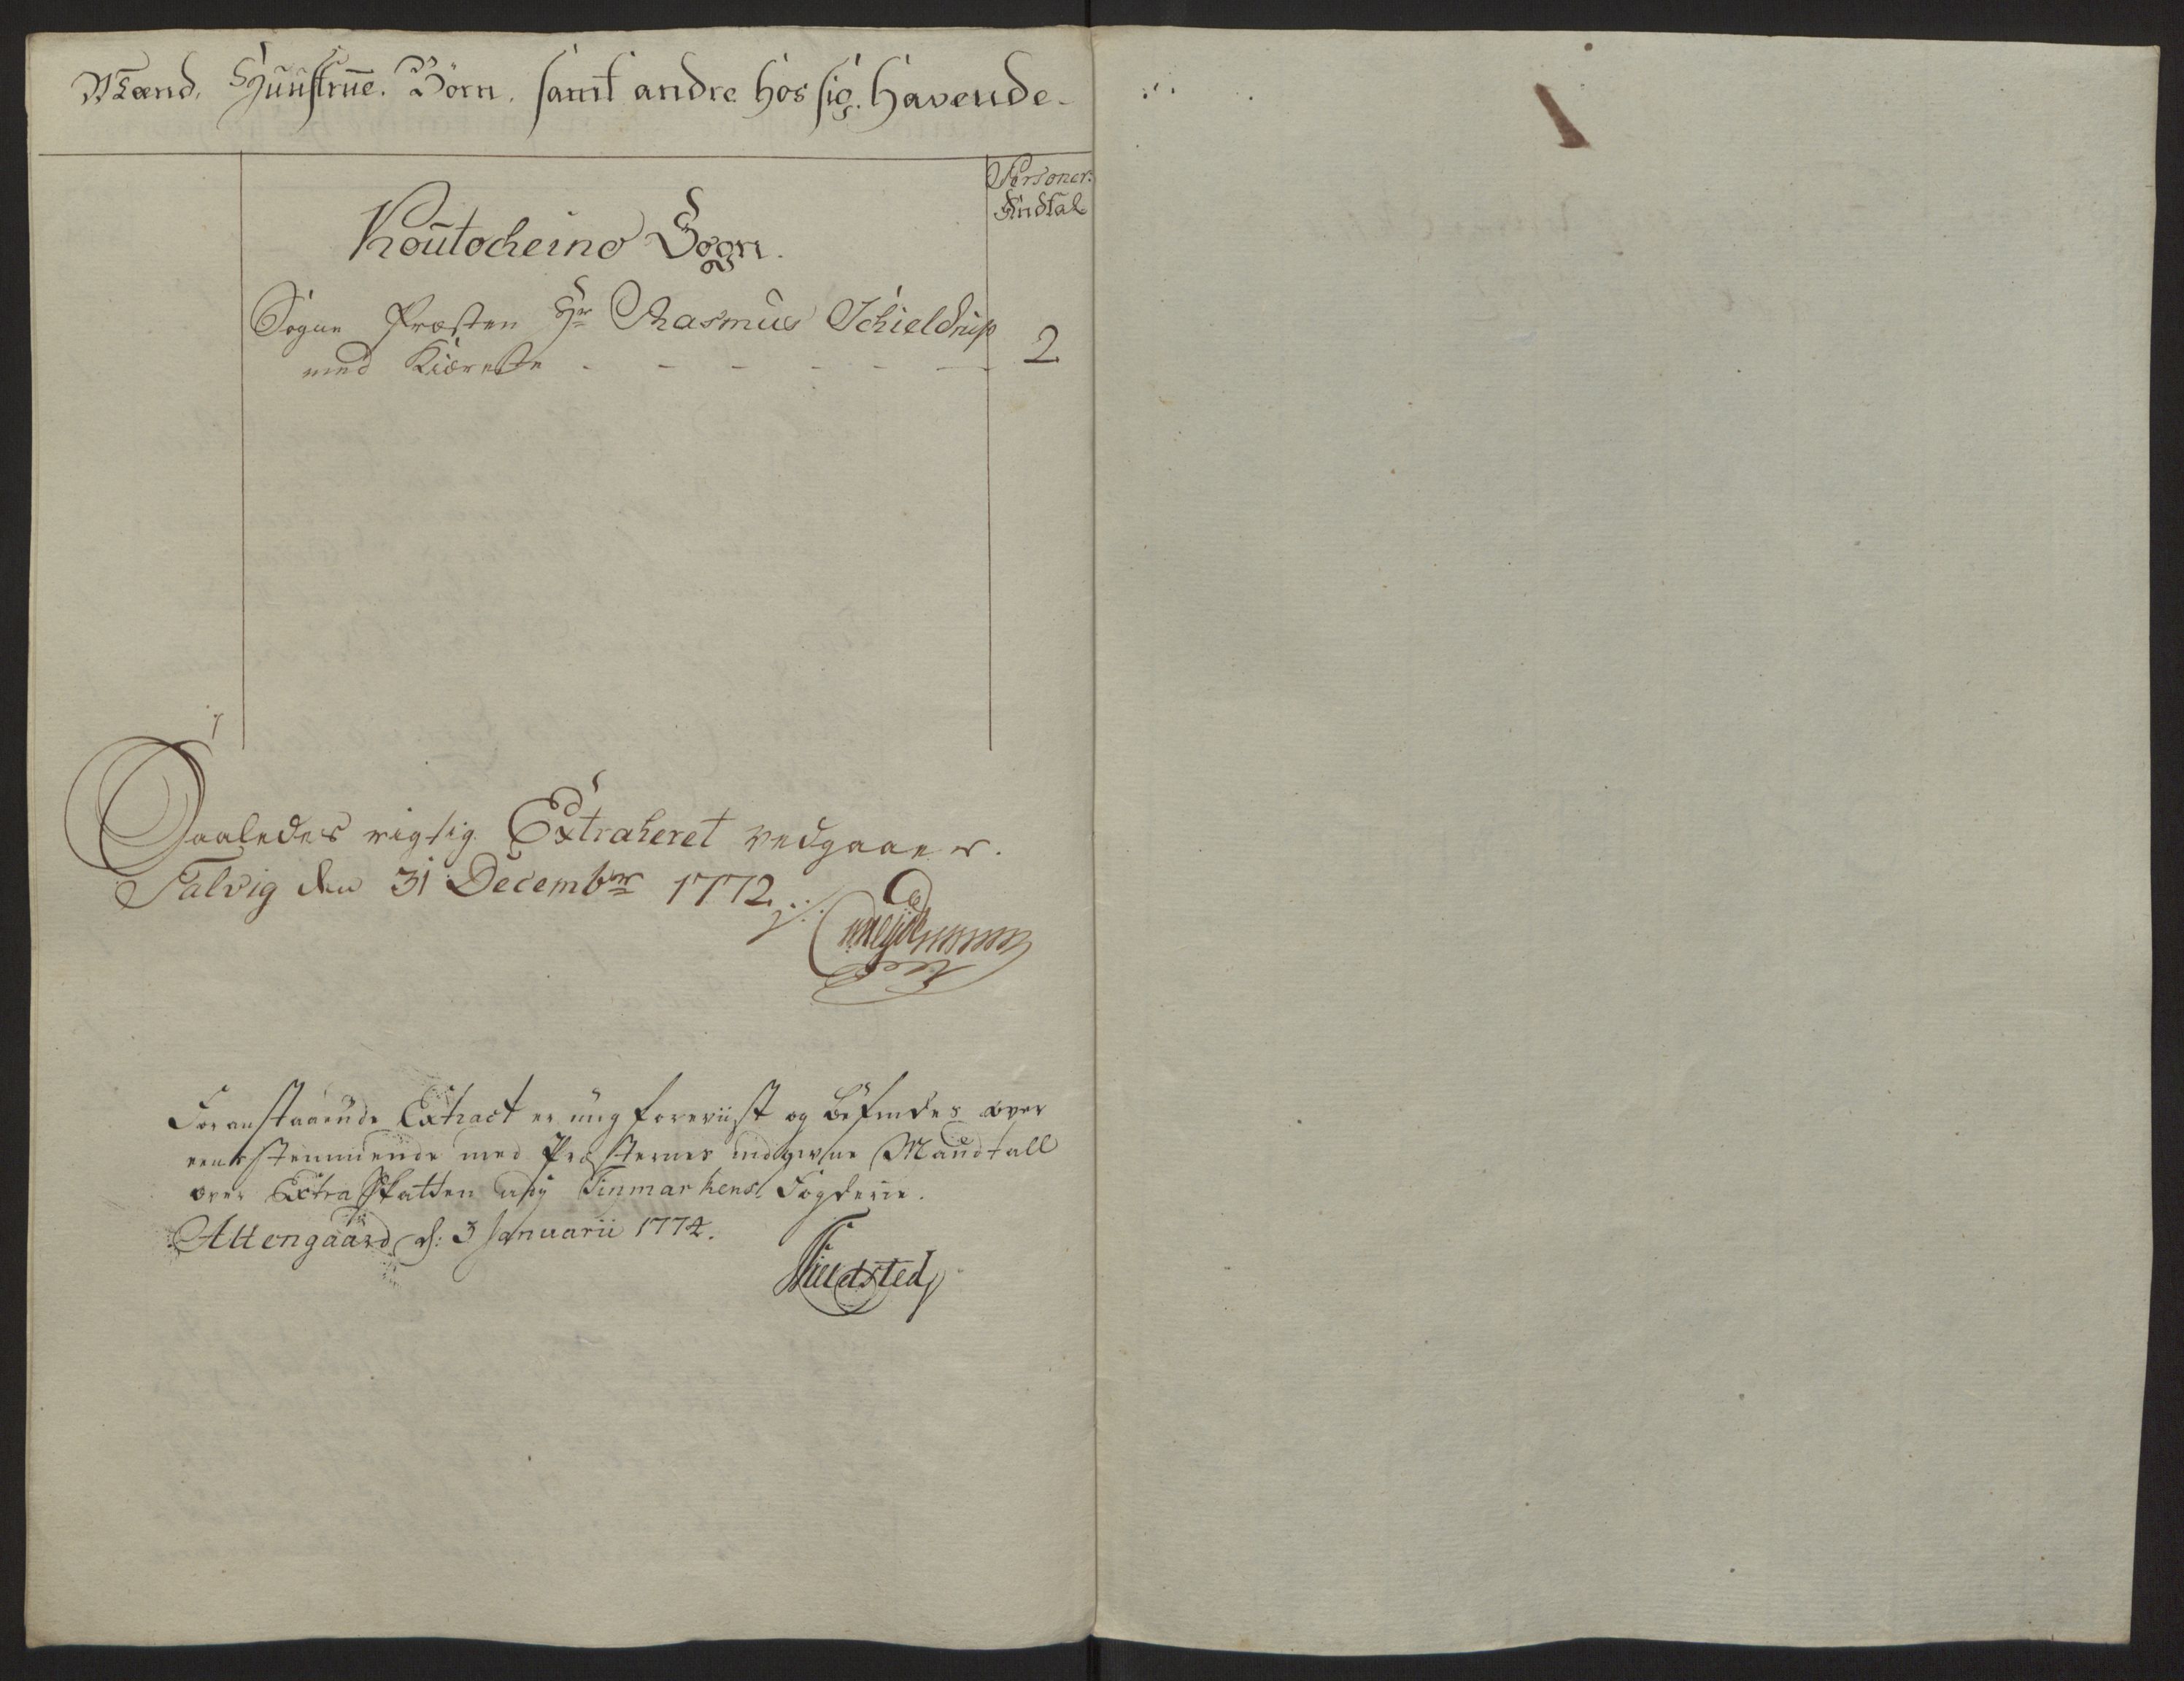 Mænd, Huustrue. Börn, samt andre hos sig. havende.
Personer.
Andtal
Koutocheino Sogn.
Sogne Præsten Hr Rasmus Schieldrup
med Kiæreste - - - - - - 2
Saaledes rigtig Extraheret vedgaaer.
Talvig den 31 Decembr 1772
Foranstaaende Extract er mig foreviist og befindes over
eensstemmende med Præsternes indgivne Mandtall
over Extra Skatten udj Finmarkens Fogderie.
Altengaard d: 3 Januarii 1774.